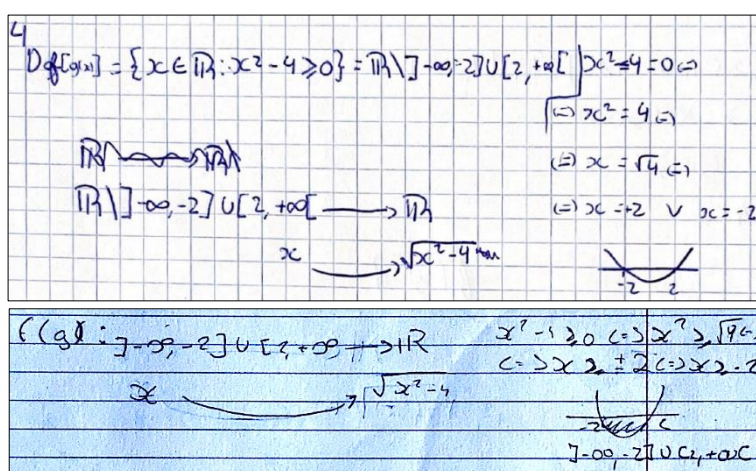 4
Df[g(x)] = {x ∈ ℝ : x² - 4 ≥ 0} = ℝ \ ]-∞, -2] ∪ [2, +∞[
x² - 4 = 0 (=)
(=) x² = 4 (=)
(=) x = √4 (=)
(=) x = +2 ∨ x = -2
ℝ \ ]-∞, -2] ∪ [2, +∞[ ⟶ ℝ
x ⟶ √x² - 4
-2 2
]-∞, -2] ∪ [2, +∞ → ℝ
x ⟶ √x² - 4
x² - 4 ≥ 0 (=> x² ≥ √4 (=
(=> x ≥ ± 2 (=> x ≥ -2
-2
]-∞, -2] ∪ [2, +∞[